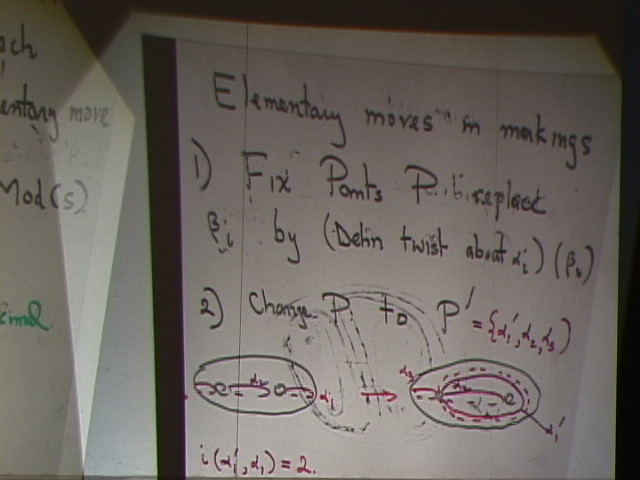 och
entary move
Mod(s)
Elementary moves in markings
1) Fix Pants P. & replace
βi by (Dehn twist about αi) (βi)
2) Change P to P' = {α1', α2, α3}
α2
α1
α3
α1'
i(α1', α1) = 2.